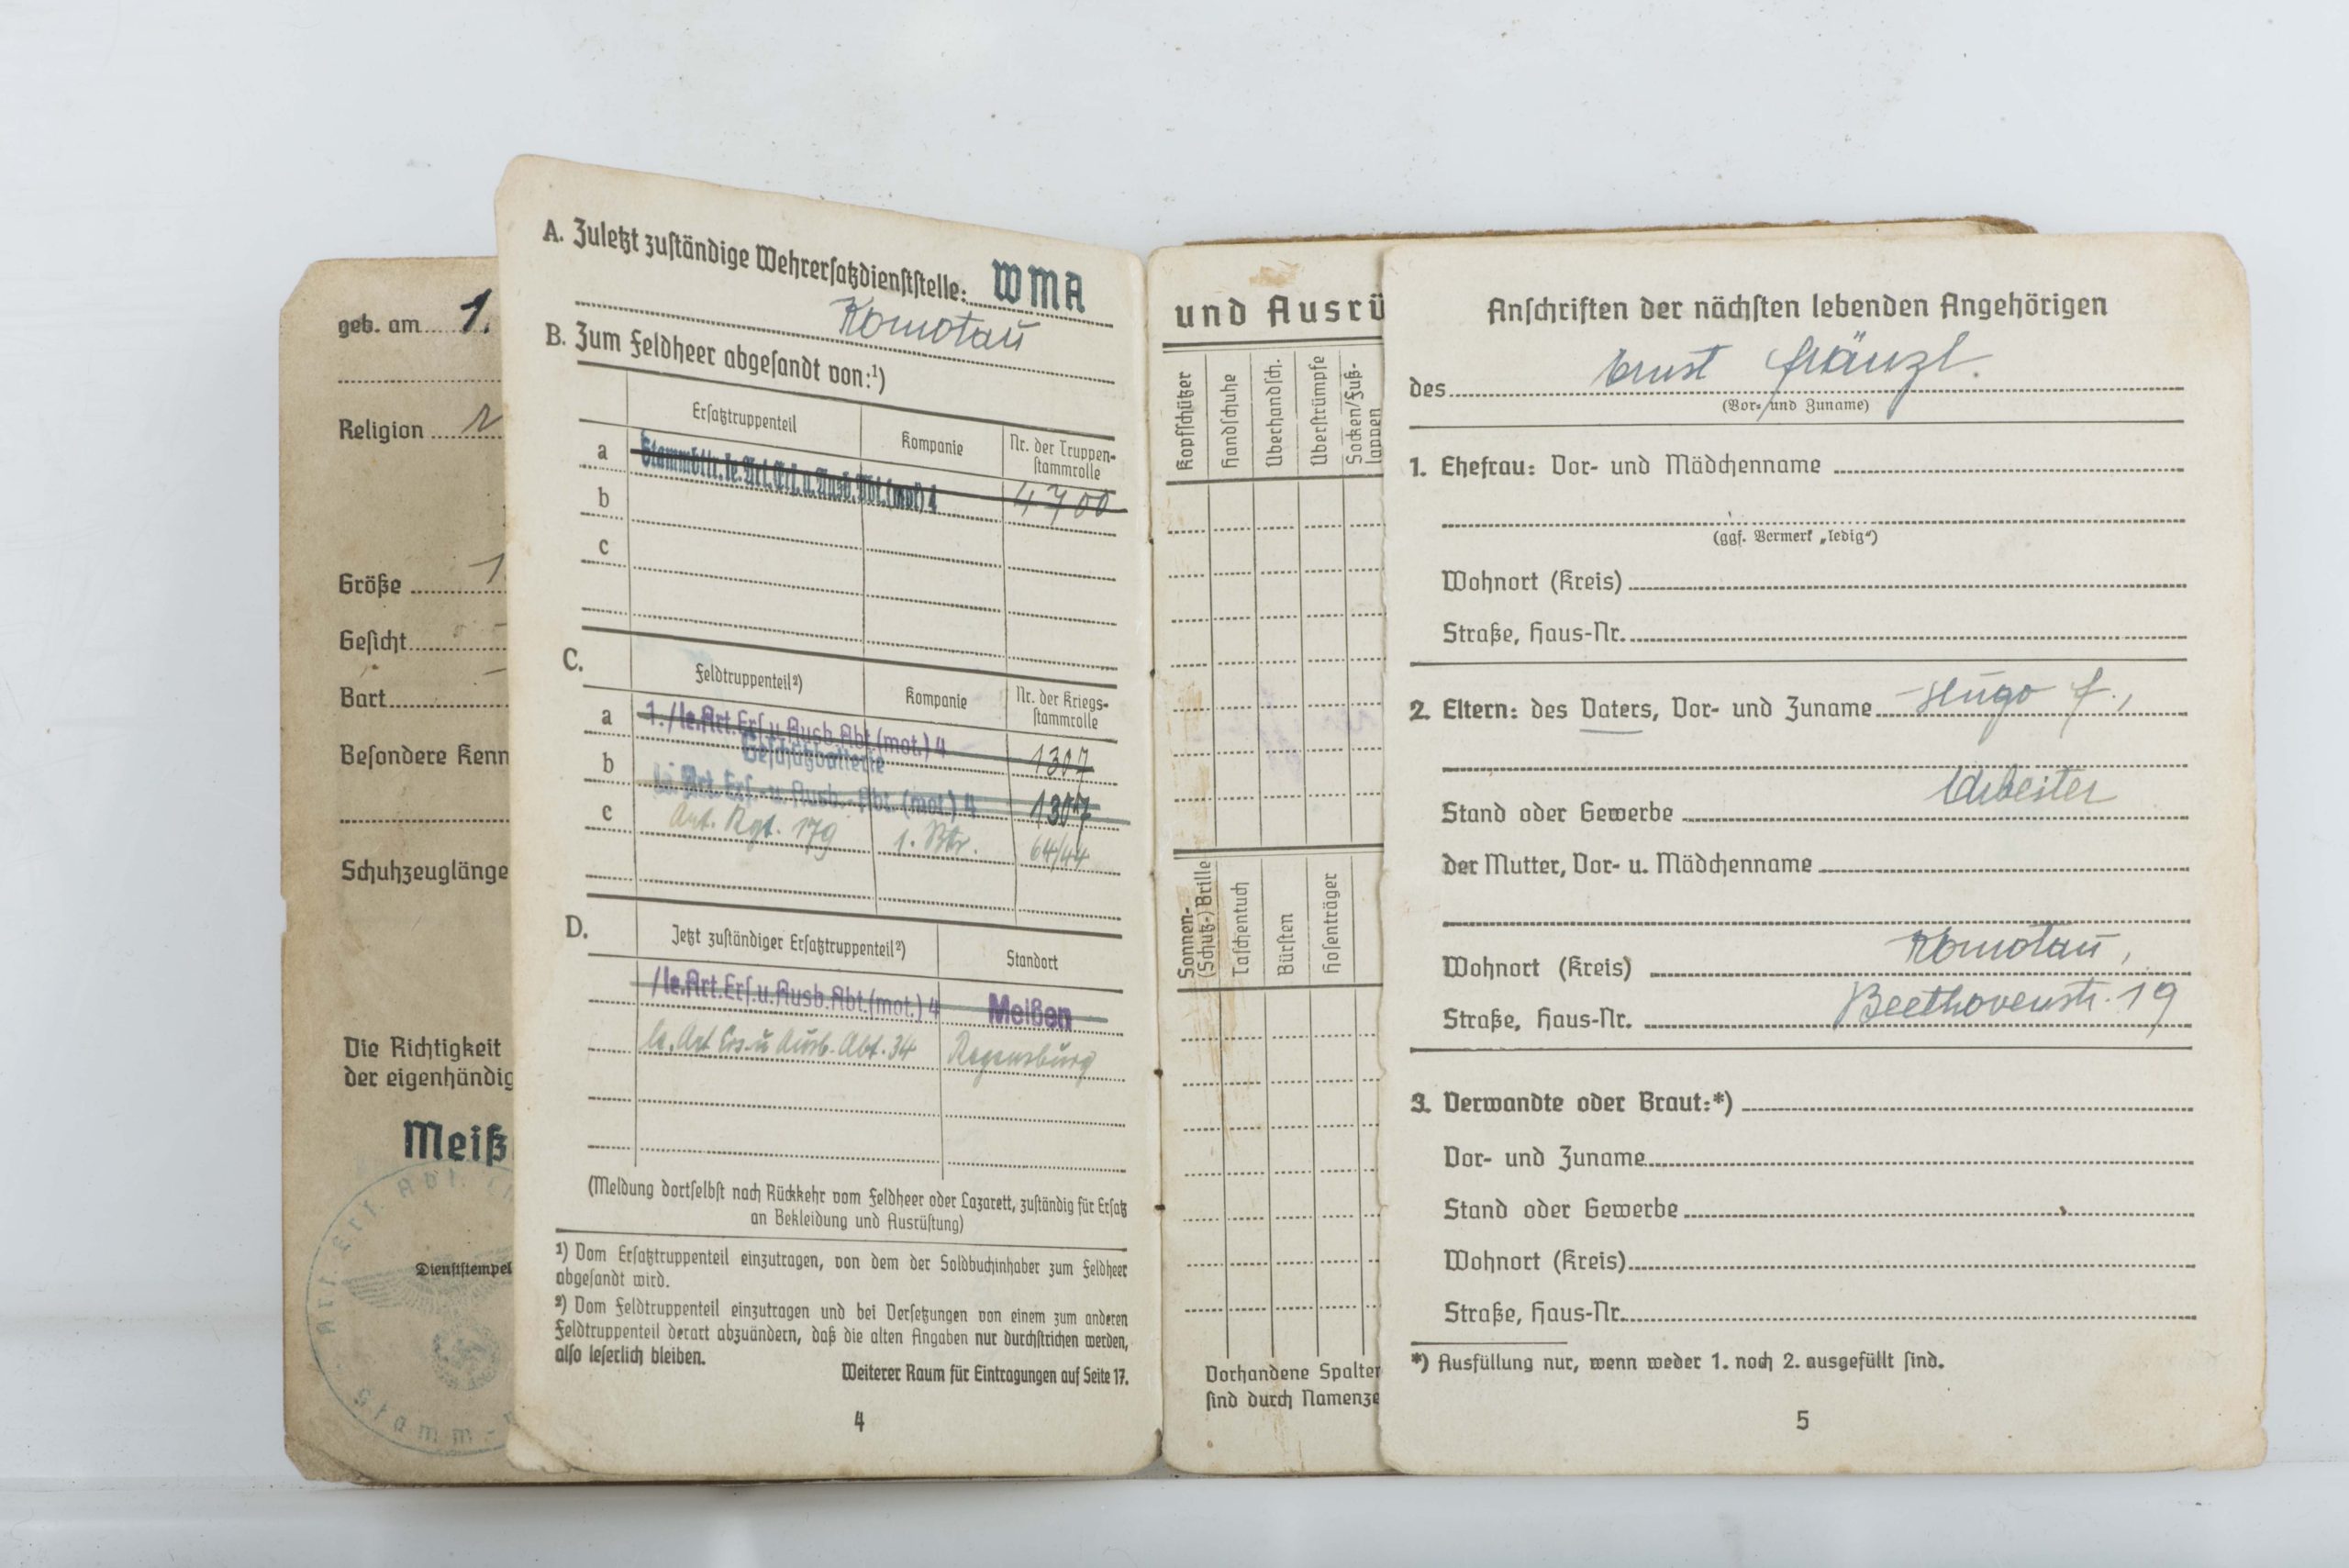 geb. am 1.
Religion
Größe 1
Gesicht
Bart
Besondere Kenn
Schuhzeuglänge
Die Richtigkeit
der eigenhändig
Meiß
Dienststempel
A. Zuletzt zuständige Wehrersatzdienststelle: WMA
Komotau
B. Zum Feldheer abgesandt von:¹)
Ersatztruppenteil Kompanie Nr. der Truppen-
stammrolle
a Stammbttr. le. Art. Ers. u. Ausb. Abt. (mot) 4 4700
b
c
C.
Feldtruppenteil²) Kompanie Nr. der Kriegs-
stammrolle
a 1./le.Art.Ers.u.Ausb.Abt.(mot.) 4 1307
Geschützbatterie
b le. Art. Ers.- u. Ausb.-Abt. (mot.) 4 1307
c Art. Rgt. 179 1. Bttr. 64/44
D.
Jetzt zuständiger Ersatztruppenteil²) Standort
/le.Art.Ers.u.Ausb.Abt.(mot.) 4 Meißen
le. Art. Ers. u. Ausb. Abt. 34 Regensburg
(Meldung dortselbst nach Rückkehr vom Feldheer oder Lazarett, zuständig für Ersatz
an Bekleidung und Ausrüstung)
¹) Vom Ersatztruppenteil einzutragen, von dem der Soldbuchinhaber zum Feldheer
abgesandt wird.
²) Vom Feldtruppenteil einzutragen und bei Versetzungen von einem zum anderen
Feldtruppenteil derart abzuändern, daß die alten Angaben nur durchstrichen werden,
also leserlich bleiben.
Weiterer Raum für Eintragungen auf Seite 17.
4
und Ausrü
Kopfschützer
Handschuhe
Überhandsch.
Überstrümpfe
Socken/Fuß-
lappen
Sonnen-
(Schutz-) Brille
Taschentuch
Bürsten
Hosenträger
Vorhandene Spalten
sind durch Namenze
Anschriften der nächsten lebenden Angehörigen
des Ernst Fränzl.
(Vor- und Zuname)
1. Ehefrau: Vor- und Mädchenname
(ggf. Vermerk „ledig“)
Wohnort (Kreis)
Straße, Haus-Nr.
2. Eltern: des Vaters, Vor- und Zuname Hugo F.,
Arbeiter
Stand oder Gewerbe
der Mutter, Vor- u. Mädchenname
Wohnort (Kreis) Komotau,
Straße, Haus-Nr. Beethovenstr. 19
3. Verwandte oder Braut:*)
Vor- und Zuname
Stand oder Gewerbe
Wohnort (Kreis)
Straße, Haus-Nr.
*) Ausfüllung nur, wenn weder 1. noch 2. ausgefüllt sind.
5